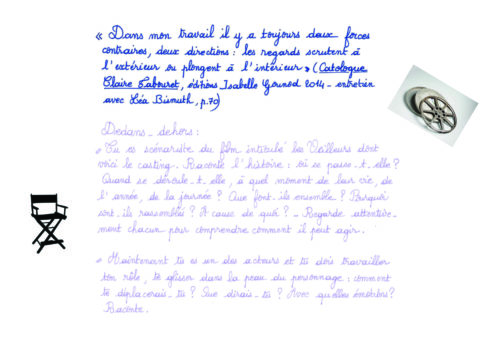 « Dans mon travail il y a toujours deux forces
contraires, deux directions : les regards scrutent à
l'extérieur ou plongent à l'intérieur » (Catalogue
Claire Tabouret, éditions Isabelle Gounod 2014 - entretien
avec Léa Bismuth, p.70)
Dedans - dehors :
• Tu es scénariste du film intitulé les Veilleurs dont
voici le casting. Raconte l'histoire : où se passe-t-elle ?
Quand se déroule-t-elle, à quel moment de leur vie, de
l'année, de la journée ? Que font-ils ensemble ? Pourquoi
sont-ils rassemblés ? A cause de quoi ? - Regarde attentive-
ment chacun pour comprendre comment il peut agir.
• Maintenant tu es un des acteurs et tu dois travailler
ton rôle, te glisser dans la peau du personnage : comment
te déplacerais-tu ? Que dirais-tu ? Avec quelles émotions ?
Raconte.